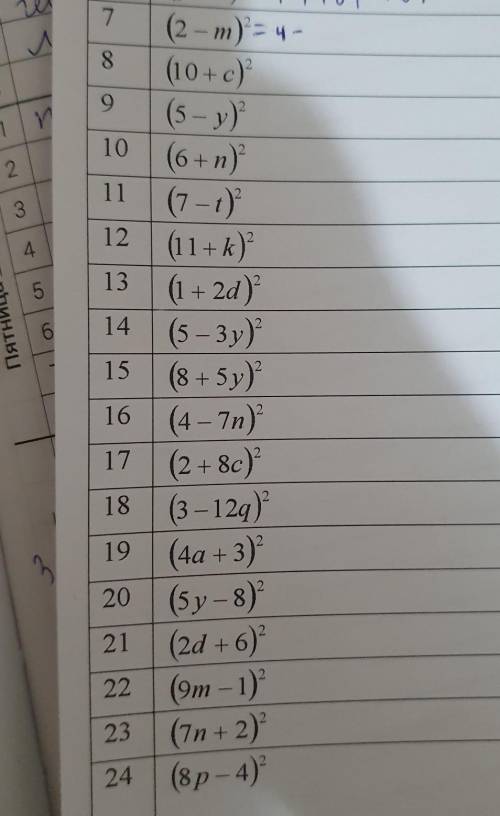 7 (2 – m)² = 4 –
8 (10 + c)²
9 (5 – y)²
10 (6 + n)²
11 (7 – t)²
12 (11 + k)²
13 (1 + 2d)²
14 (5 – 3y)²
15 (8 + 5y)²
16 (4 – 7n)²
17 (2 + 8c)²
18 (3 – 12q)²
19 (4a + 3)²
20 (5y – 8)²
21 (2d + 6)²
22 (9m – 1)²
23 (7n + 2)²
24 (8p – 4)²
1
2
3
4
5
6
Пятница